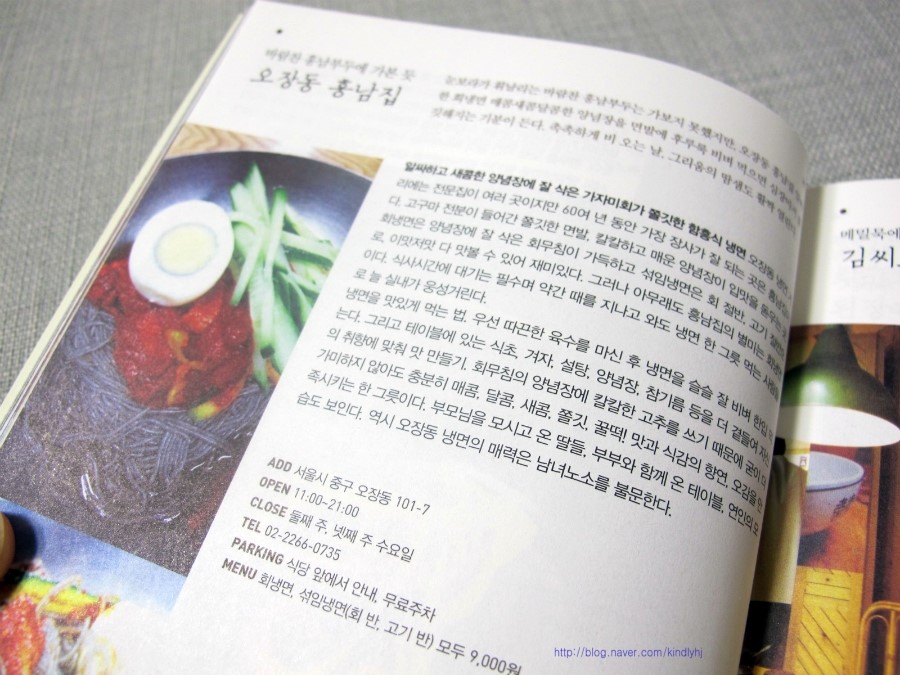 바람찬 흥남부두에 가본 듯
오장동 흥남집
눈보라가 휘날리는 바람찬 흥남부두는 가보지 못했지만, 오장동 흥남집
한 회냉면 매콤새콤달콤한 양념장을 면발에 후루룩 비벼 먹으면
깃해지는 기분이 든다. 촉촉하게 비 오는 날, 그리움의
알싸하고 새콤한 양념장에 잘 삭은 가자미회가 쫄깃한 함흥식 냉면 오장동
리에는 전문집이 여러 곳이지만 60여 년 동안 가장 장사가 잘 되는 곳은
다. 고구마 전분이 들어간 쫄깃한 면발, 칼칼하고 매운 양념장이 입맛을 돋우는
회냉면은 양념장에 잘 삭은 회무침이 가득하고 섞임냉면은 회 절반, 고기 절반
로, 이맛저맛 다 맛볼 수 있어 재미있다. 그러나 아무래도 흥남집의 별미는 회냉면
이다. 식사시간에 대기는 필수며 약간 때를 지나고 와도 냉면 한 그릇 먹는 사람들
로 늘 실내가 웅성거린다.
냉면을 맛있게 먹는 법. 우선 따끈한 육수를 마신 후 냉면을 슬슬 잘 비벼 한입
는다. 그리고 테이블에 있는 식초, 겨자, 설탕, 양념장, 참기름 등을 더 곁들여 자신
의 취향에 맞춰 맛 만들기. 회무침의 양념장에 칼칼한 고추를 쓰기 때문에 굳이 더
가미하지 않아도 충분히 매콤, 달콤, 새콤, 쫄깃, 꿀떡! 맛과 식감의 향연. 오감을 만
족시키는 한 그릇이다. 부모님을 모시고 온 딸들, 부부와 함께 온 테이블, 연인의 모
습도 보인다. 역시 오장동 냉면의 매력은 남녀노소를 불문한다.
ADD 서울시 중구 오장동 101-7
OPEN 11:00~21:00
CLOSE 둘째 주, 넷째 주 수요일
TEL 02-2266-0735
PARKING 식당 앞에서 안내, 무료주차
MENU 회냉면, 섞임냉면(회 반, 고기 반) 모두 9,000원
메밀묵에
김씨
http://blog.naver.com/kindlyhj